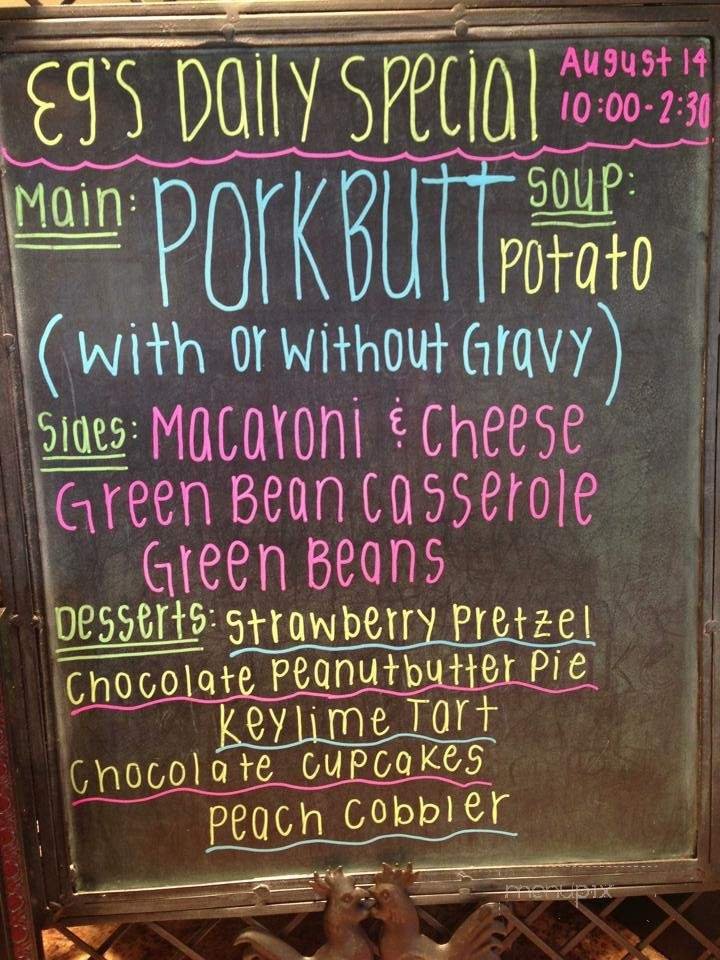 Eg's Daily Special
August 14
10:00-2:30
Main: Pork Butt
Soup:
Potato
(with or without Gravy)
Sides: Macaroni & Cheese
Green Bean Casserole
Green Beans
Desserts: Strawberry Pretzel
Chocolate Peanutbutter Pie
Keylime Tart
Chocolate Cupcakes
Peach Cobbler
menupix